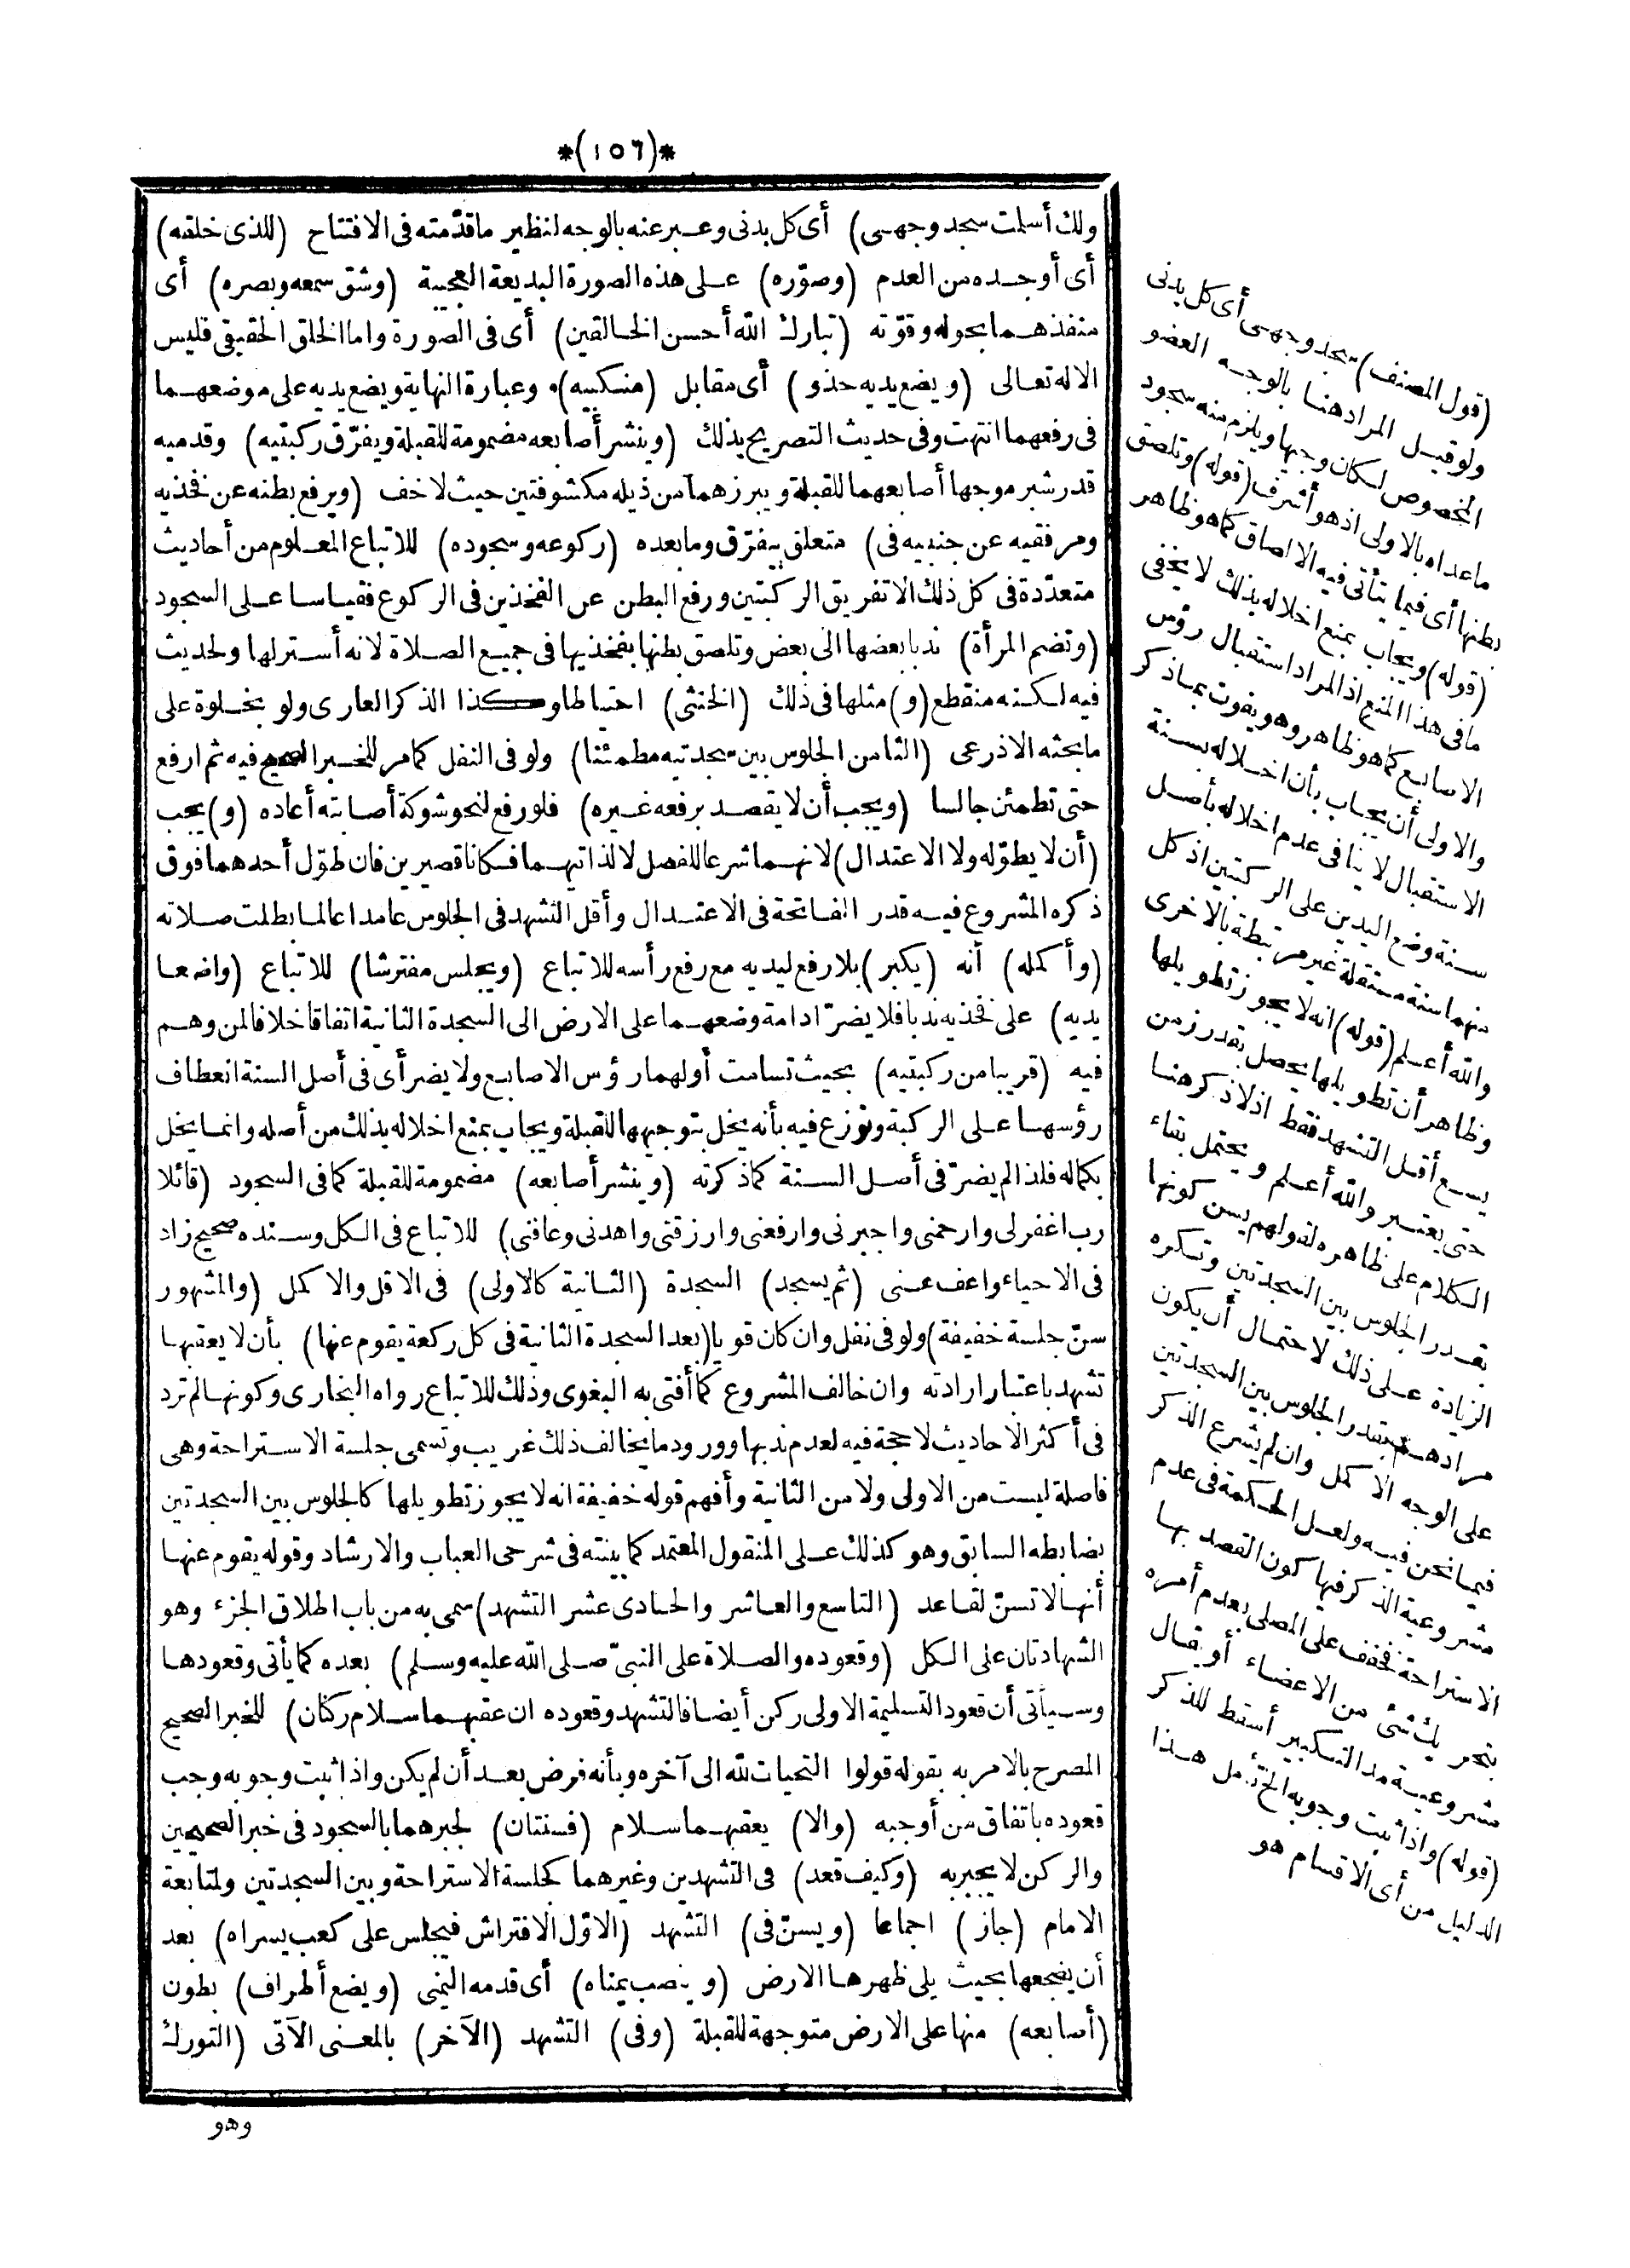 *(١٥٦)*
ولك أسلمت سجد وجهى) أى كل بدنى وعبر عنه بالوجه لنظير ما قدّمته فى الافتتاح (للذى خلقه)
أى أوجده من العدم (وصوّره) على هذه الصورة البديعة العجيبة (وشق سمعه وبصره) أى
منفذهما بحوله وقوّته (تبارك الله أحسن الخالقين) أى فى الصورة واما الخلق الحقيقى فليس
الا له تعالى (ويضع يديه حذو) أى مقابل (منكبيه) وعبارة النهاية ويضع يديه على موضعهما
فى رفعهما انتهت وفى حديث التصريح بذلك (وينشر أصابعه مضمومة للقبلة ويفرّق ركبتيه) وقدميه
قدر شبر موجها أصابعهما للقبلة ويبرزهما من ذيله مكشوفتين حيث لا خف (ويرفع بطنه عن فخذيه
ومرفقيه عن جنبيه فى) متعلق بيفرّق وما بعده (ركوعه وسجوده) للاتباع المعلوم من أحاديث
متعدّدة فى كل ذلك الا تفريق الركبتين ورفع البطن عن الفخذين فى الركوع فقياسا على السجود
(وتضم المرأة) ندبا بعضها الى بعض وتلصق بطنها بفخذيها فى جميع الصلاة لانه أستر لها ولحديث
فيه لكنه منقطع (و) مثلها فى ذلك (الخنثى) احتياطا وكذا الذكر العارى ولو بخلوة على
ما بحثه الاذرعى (الثامن الجلوس بين سجدتيه مطمئنا) ولو فى النفل كما مر للخبر الصحيح فيه ثم ارفع
حتى تطمئن جالسا (ويجب أن لا يقصد برفعه غيره) فلو رفع لنحو شوكة أصابته أعاده (و) يجب
(أن لا يطوّله ولا الاعتدال) لانهما شرعا للفصل لا لذاتهما فكانا قصيرين فان طوّل أحدهما فوق
ذكره المشروع فيه قدر الفاتحة فى الاعتدال وأقل التشهد فى الجلوس عامدا عالما بطلت صلاته
(وأكمله) أنه (يكبر) بلا رفع ليديه مع رفع رأسه للاتباع (ويجلس مفترشا) للاتباع (واضعا
يديه) على فخذيه ندبا فلا يضرّ ادامة وضعهما على الارض الى السجدة الثانية اتفاقا خلافا لمن وهم
فيه (قريبا من ركبتيه) بحيث تسامت أولهما رؤس الاصابع ولا يضر أى فى أصل السنة انعطاف
رؤسها على الركبة ونوزع فيه بأنه يخل بتوجيهها للقبلة ويجاب بمنع اخلاله بذلك من أصله وانما يخل
بكماله فلذا لم يضرّ فى أصل السنة كما ذكرته (وينشر أصابعه) مضمومة للقبلة كما فى السجود (قائلا
رب اغفر لى وارحمنى واجبرنى وارفعنى وارزقنى واهدنى وعافنى) للاتباع فى الكل وسنده صحيح زاد
فى الاحياء واعف عنى (ثم يسجد) السجدة (الثانية كالاولى) فى الاقل والاكمل (والمشهور
سنّ جلسة خفيفة) ولو فى نفل وان كان قويا (بعد السجدة الثانية فى كل ركعة يقوم عنها) بأن لا يعقبها
تشهد باعتبار ارادته وان خالف المشروع كما أفتى به البغوى وذلك للاتباع رواه البخارى وكونها لم ترد
فى أكثر الاحاديث لا حجة فيه لعدم ندبها وورود ما يخالف ذلك غريب وتسمى جلسة الاستراحة وهى
فاصلة ليست من الاولى ولا من الثانية وأفهم قوله خفيفة انه لا يجوز تطويلها كالجلوس بين السجدتين
بضابطه السابق وهو كذلك على المنقول المعتمد كما بينته فى شرحى العباب والارشاد وقوله يقوم عنها
أنها لا تسنّ لقاعد (التاسع والعاشر والحادى عشر التشهد) سمى به من باب اطلاق الجزء وهو
الشهادتان على الكل (وقعوده والصلاة على النبىّ صلى الله عليه وسلم) بعده كما يأتى وقعودها
وسيأتى أن قعود التسليمة الاولى ركن أيضا فالتشهد وقعوده ان عقبهما سلام ركنان) للخبر الصحيح
المصرح بالامر به بقوله قولوا التحيات لله الى آخره وبأنه فرض بعد أن لم يكن واذا ثبت وجوبه وجب
قعوده باتفاق من أوجبه (والا) يعقبهما سلام (فسنتان) لجبرهما بالسجود فى خبر الصحيحين
والركن لا يجبر به (وكيف قعد) فى التشهدين وغيرهما كجلسة الاستراحة وبين السجدتين ولمتابعة
الامام (جاز) اجماعا (ويسنّ فى) التشهد (الاوّل الافتراش فيجلس على كعب يسراه) بعد
أن يضجعها بحيث يلى ظهرها الارض (وينصب يمناه) أى قدمه اليمنى (ويضع أطراف) بطون
(أصابعه) منها على الارض متوجهة للقبلة (وفى) التشهد (الآخر) بالمعنى الآتى (التورك
وهو
(قول المصنف) سجد وجهى أى كل بدنى
ولو قيل المراد هنا بالوجه العضو
المخصوص لكان وجيها ويلزم منه سجود
ما عداه بالاولى اذ هو أشرف (قوله) وتلصق
بطنها أى فيما يتأتى فيه الالصاق كما هو ظاهر
(قوله) ويجاب بمنع اخلاله بذلك لا يخفى
ما فى هذا المنع اذ المراد استقبال رؤس
الاصابع كما هو ظاهر وهو يفوت بما ذكر
والاولى أن يجاب بأن اخلاله بسنة
الاستقبال لا ينافى عدم اخلاله بأصل
سنة وضع اليدين على الركبتين اذ كل
منهما سنة مستقلة غير مرتبطة بالاخرى
والله أعلم (قوله) انه لا يجوز تطويلها
وظاهر أن تطويلها يحصل بقدر زمن
يسع أقل التشهد فقط اذ لا ذكر هنا
حتى يعتبر والله أعلم ويحتمل بقاء
الكلام على ظاهره لقولهم يسن كونها
بقدر الجلوس بين السجدتين وتكره
الزيادة على ذلك لاحتمال أن يكون
مرادهم بقدر الجلوس بين السجدتين
على الوجه الاكمل وان لم يشرع الذكر
فيما نحن فيه ولعل الحكمة فى عدم
مشروعية الذكر فيها كون القصد بها
الاستراحة فخفف على المصلى بعدم أمره
بتحريك شئ من الاعضاء أو يقال
مشروعية مد التكبير أسقط للذكر
(قوله) واذا ثبت وجوبه الخ تأمل هذا
الدليل من أى الاقسام هو